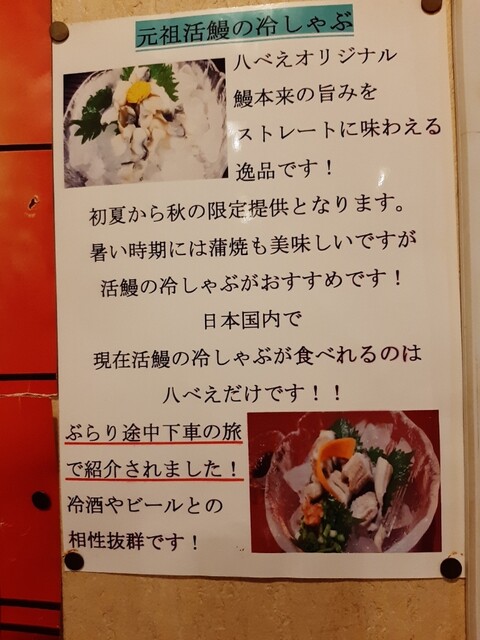 元祖活鰻の冷しゃぶ
八べえオリジナル
鰻本来の旨みを
ストレートに味わえる
逸品です！
初夏から秋の限定提供となります。
暑い時期には蒲焼も美味しいですが
活鰻の冷しゃぶがおすすめです！
日本国内で
現在活鰻の冷しゃぶが食べれるのは
八べえだけです！！
ぶらり途中下車の旅
で紹介されました！
冷酒やビールとの
相性抜群です！